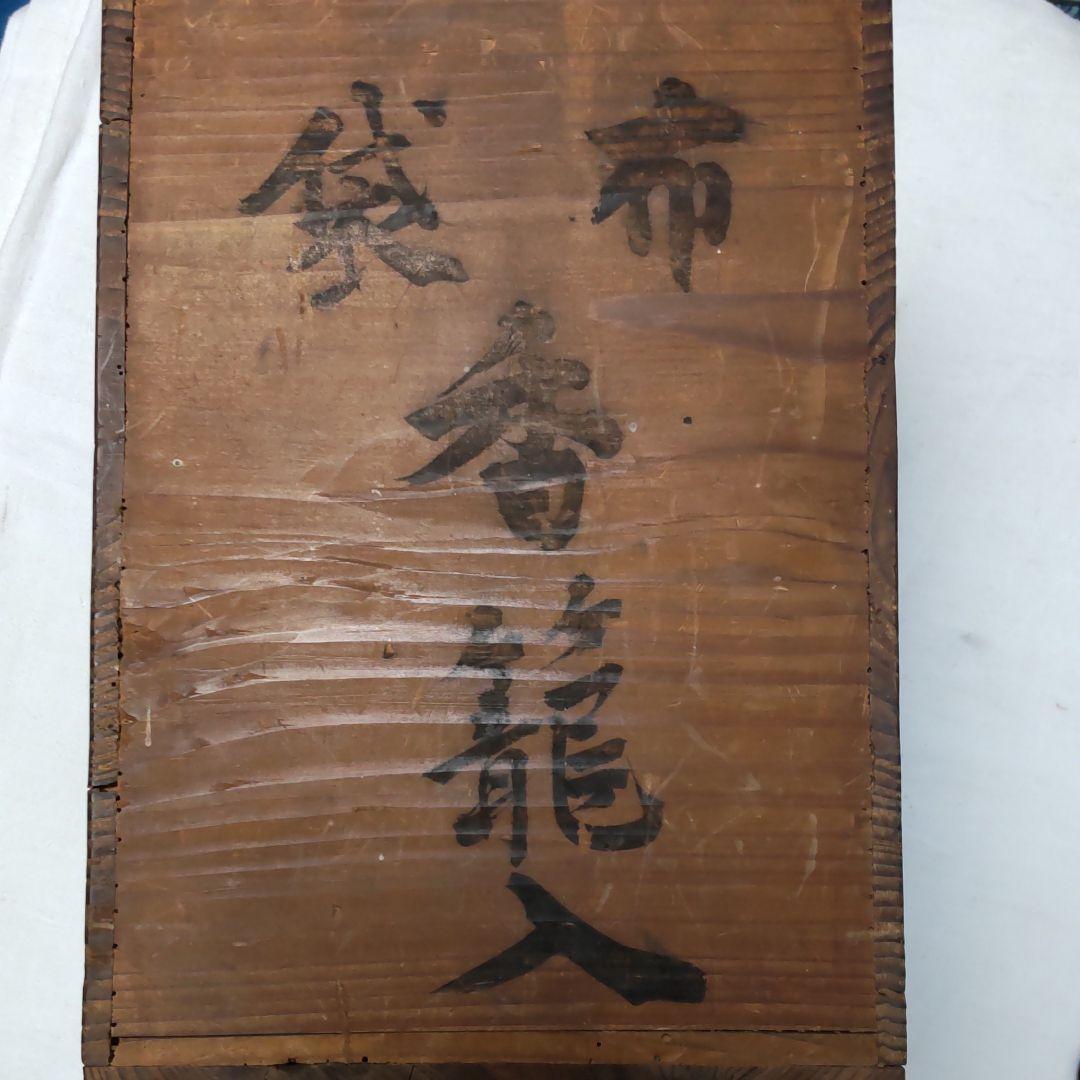 市
袋
香籠入